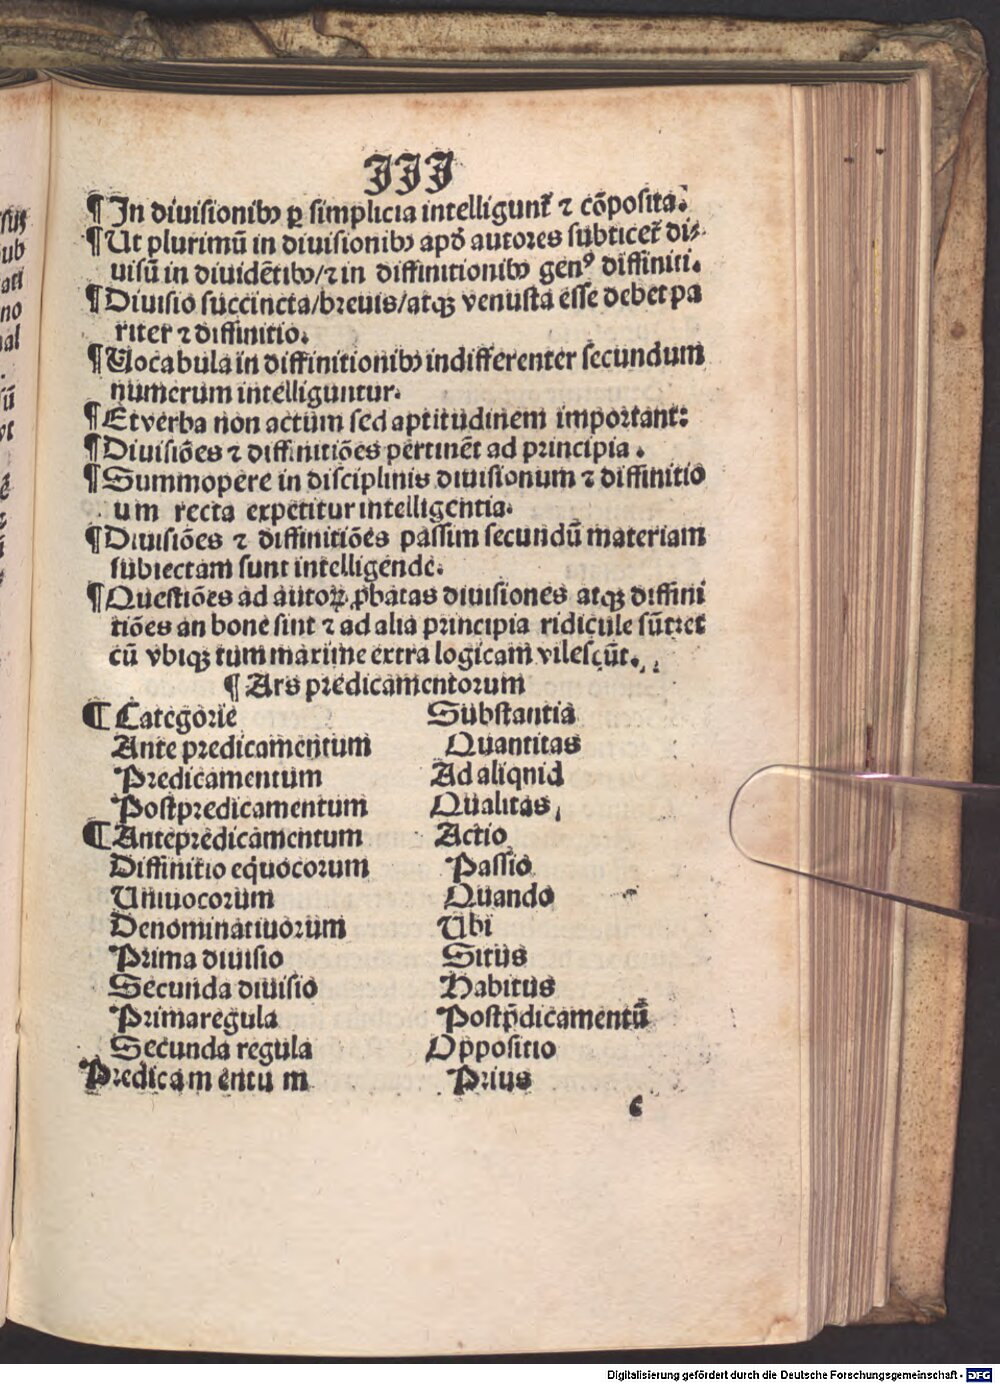 III
¶ In diuisionibꝫ ꝑ simplicia intelligunt᷑ ⁊ cõposita.
¶ Ut plurimũ in diuisionibꝫ apd̛ autores subticet᷑ di⸗
uisũ in diuidẽtibꝫ/⁊ in diffinitionibꝫ genꝰ diffiniti.
¶ Diuisio succincta/breuis/atqꝫ venusta esse debet pa
riter ⁊ diffinitio.
¶ Uocabula in diffinitionibꝫ indifferenter secundum
numerum intelliguntur.
¶ Et verba non actum sed aptitudinem important:
¶ Diuisiões ⁊ diffinitiões pertinẽt ad principia.
¶ Summopere in disciplinis diuisionum ⁊ diffinitio
um recta expetitur intelligentia.
¶ Diuisiões ⁊ diffinitiões passim secundũ materiam
subiectam sunt intelligende.
¶ Questiões ad autoꝝ ꝓbatas diuisiones atqꝫ diffini
tiões an bone sint ⁊ ad alia principia ridicule sũt:et
cũ vbiqꝫ tum maxime extra logicam vilescũt.
¶ Ars predicamentorum
¶ Categorie
Ante predicamentum
Predicamentum
Postpredicamentum
¶ Antepredicamentum
Diffinitio equocorum
Uniuocorum
Denominatiuorum
Prima diuisio
Secunda diuisio
Prima regula
Secunda regula
Predicamentum
Substantia
Quantitas
Ad aliquid
Qualitas
Actio
Passio
Quando
Ubi
Situs
Habitus
Postp̄dicamentũ
Oppositio
Prius
c
Digitalisierung gefördert durch die Deutsche Forschungsgemeinschaft - DFG